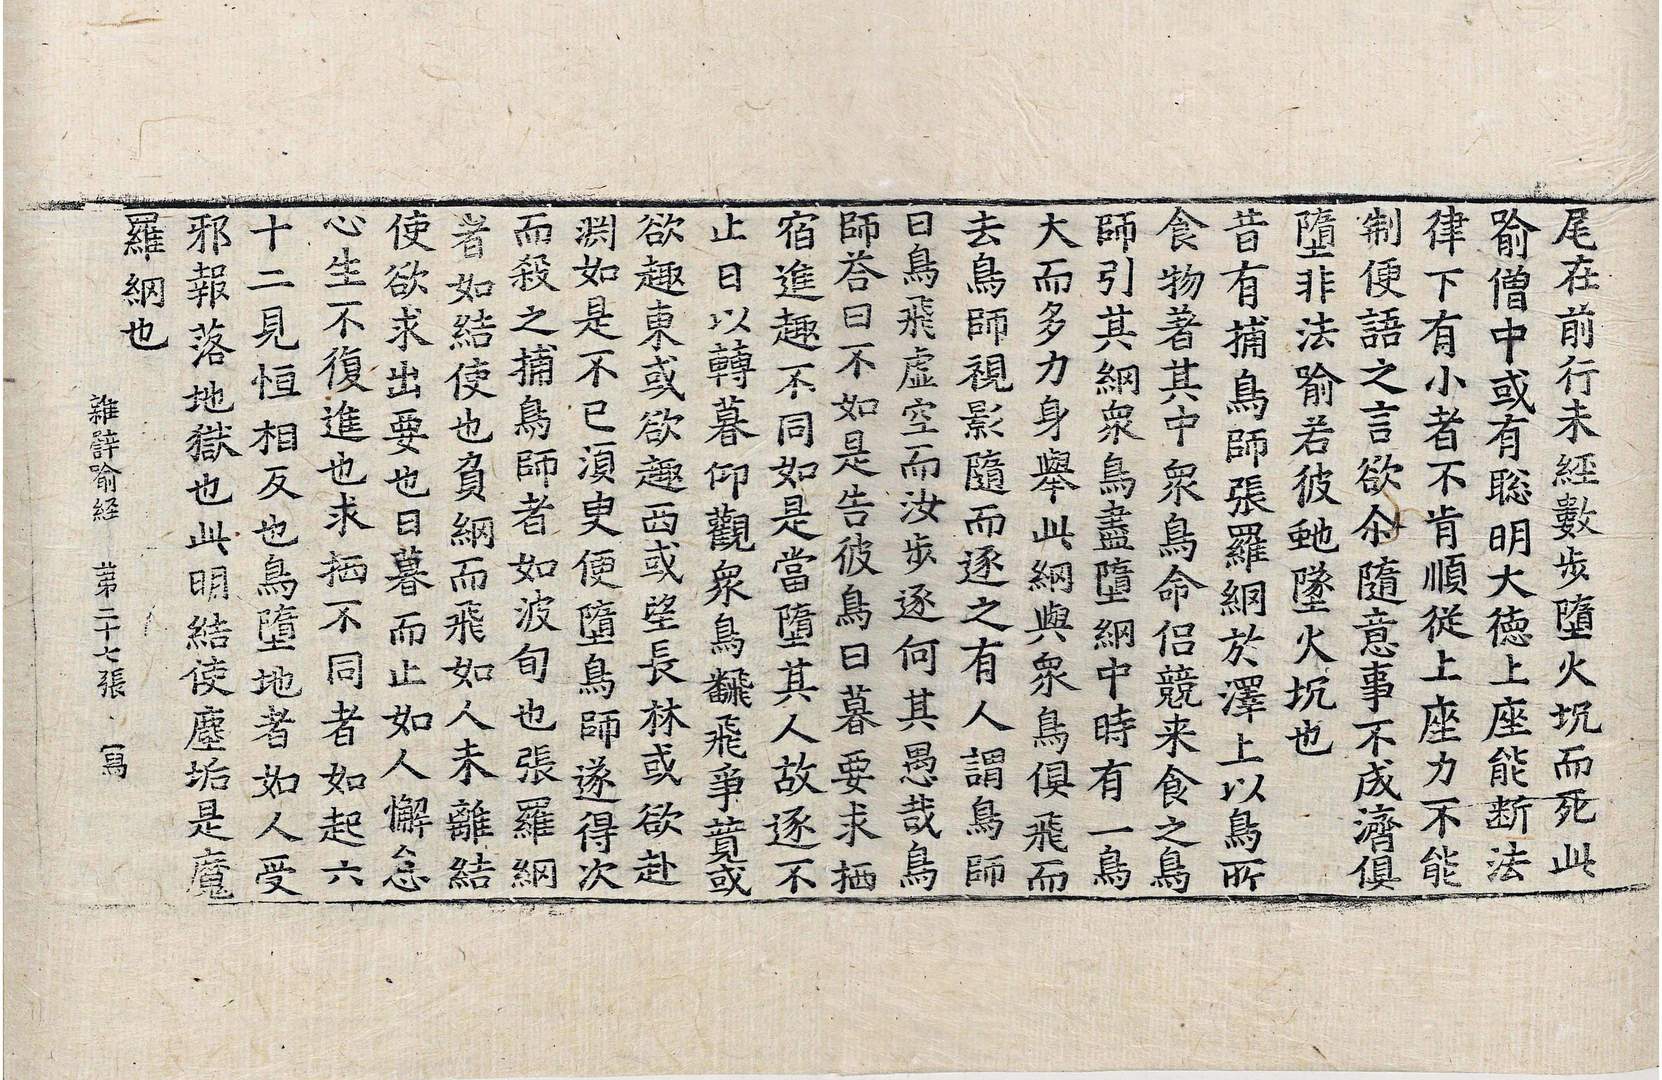 尾在前行未經數步墮火坑而死此
喻僧中或有聡明大德上座能断法
律下有小者不肯順從上座力不能
制便語之言欲尒隨意事不成濟俱
墮非法喻若彼虵墜火坑也
昔有捕鳥師張羅網於澤上以鳥所
食物著其中衆鳥命侶競来食之鳥
師引其網衆鳥盡墮網中時有一鳥
大而多力身舉此網與衆鳥俱飛而
去鳥師視影隨而逐之有人謂鳥師
曰鳥飛虛空而汝步逐何其愚哉鳥
師荅曰不如是告彼鳥日暮要求栖
宿進趣不同如是當墮其人故逐不
止日以轉暮仰觀衆鳥飜飛爭䕫或
欲趣東或欲趣西或望長林或欲赴
渊如是不已湏臾便墮鳥師遂得次
而殺之捕鳥師者如波旬也張羅網
者如結使也負網而飛如人未離結
使欲求出要也日暮而止如人懈怠
心生不復進也求栖不同者如起六
十二見恒相反也鳥墮地者如人受
邪報落地獄也此明結使塵垢是魔
羅網也
雜譬喻經 苐二十七張 寫